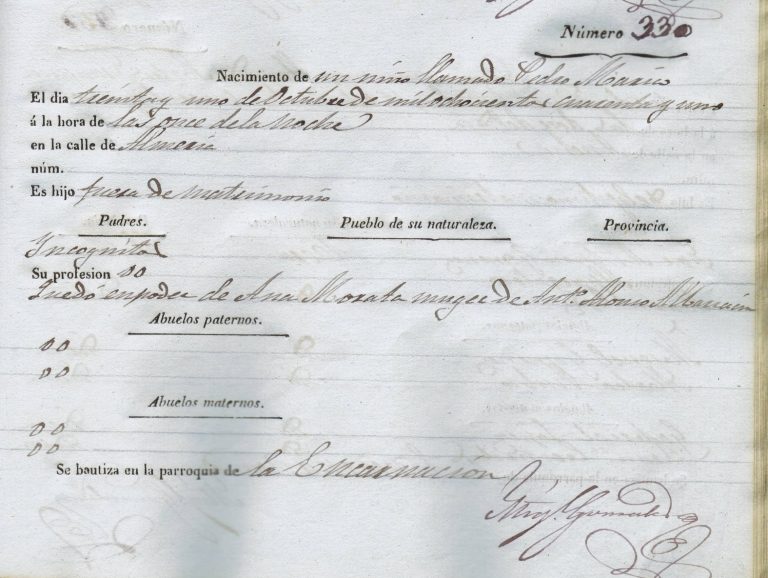 Número 330
Nacimiento de un niño llamado Pedro Maria
El dia treinta y uno de Octubre de mil ochocientos cuarenta y uno
á la hora de las once de la noche
en la calle de Almeria
núm.
Es hijo fuera de matrimonio
Padres. Pueblo de su naturaleza. Provincia.
Incognitos
Su profesion 00
Quedó en poder de Ana Morata muger de Antº. Alonso Albarracin
Abuelos paternos.
00
00
Abuelos maternos.
00
00
Se bautiza en la parroquia de la Encarnacion
Gonzalez